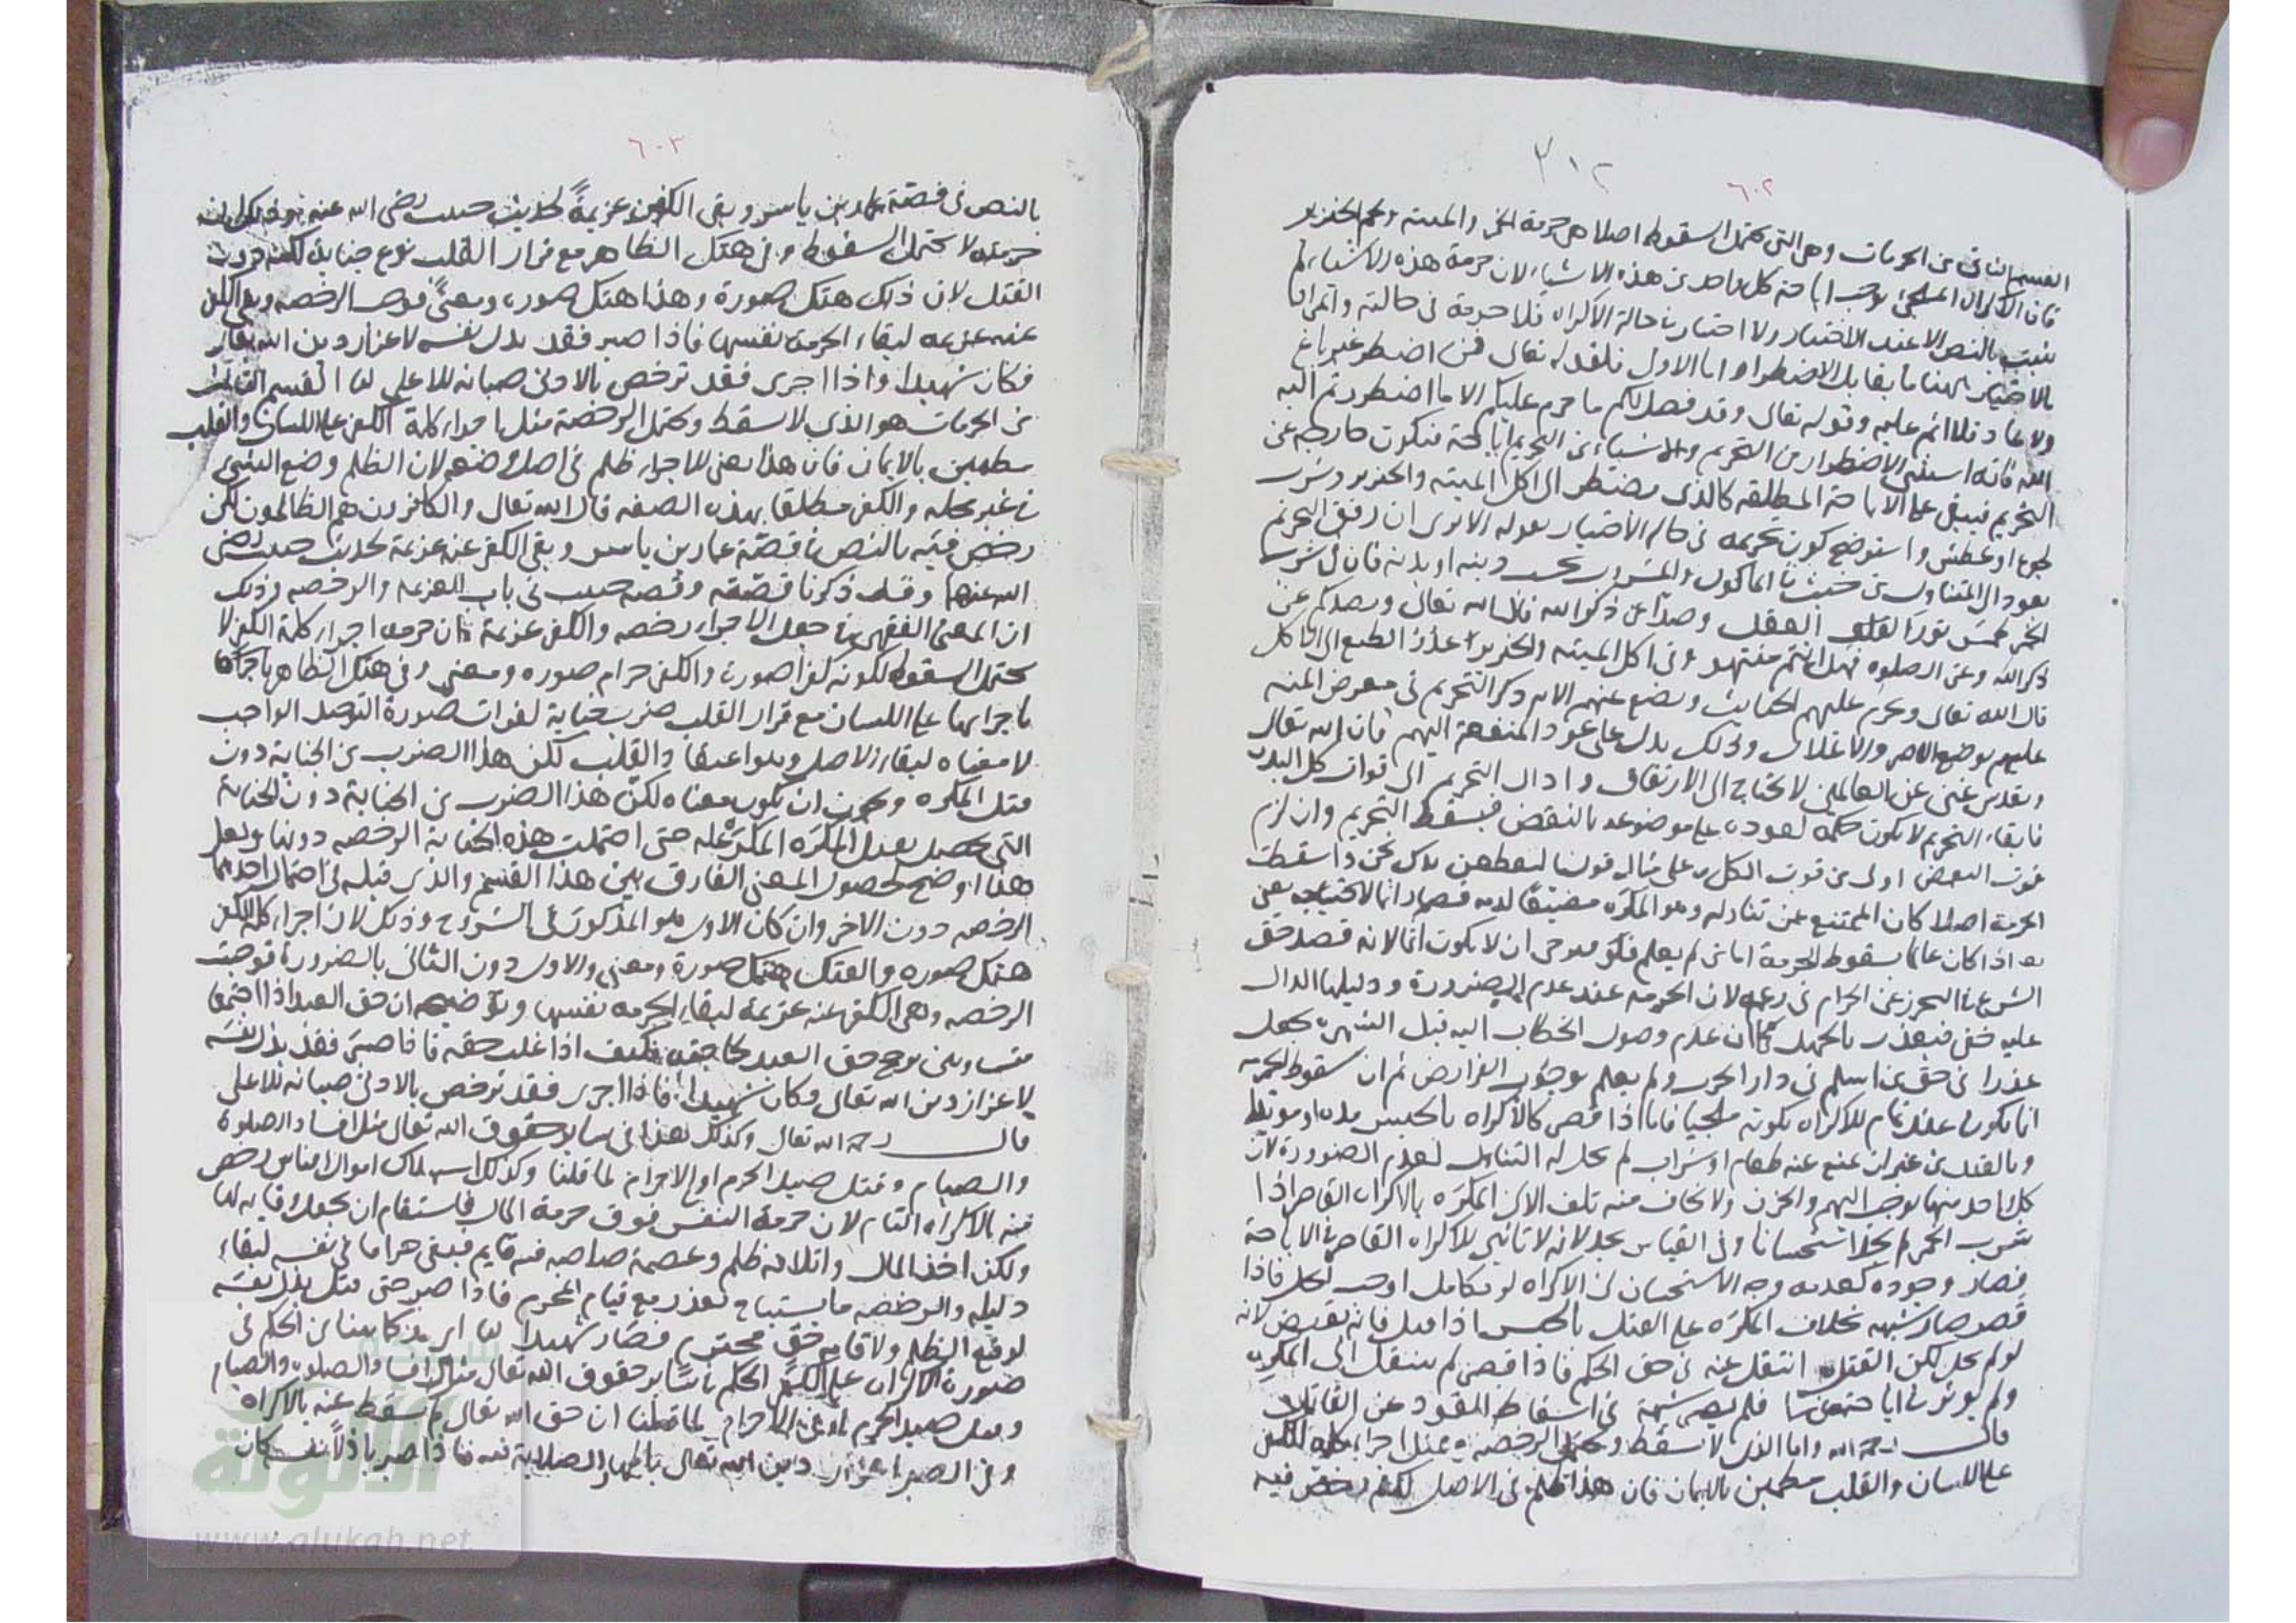 ٣١٢
٦٠٢
القسم الثاني من الحرمات وهي التي تحتمل السقوط اصلا هي حرمة الخمر والميتة ولحم الخنزير
فان الاكراه الملجئ يوجب اباحة كل واحد من هذه الاشياء لان حرمة هذه الاشياء لم
يثبت بالنص الا عند الاختيار ولا اختيار في حالة الاكراه فلا حرمة في حالته وانما
بالاختيار ههنا ما يقابل الاضطرار اما الاول فلقوله تعالى فمن اضطر غير باغ
ولا عاد فلا اثم عليه وقوله تعالى وقد فصل لكم ما حرم عليكم الا ما اضطررتم اليه
الله فانه استثنى الاضطرار من التحريم والاستثناء من التحريم اباحة فتكون خارجة عن
التحريم فيبقى على الاباحة المطلقة كالذي يضطر الى اكل الميتة والخنزير وشرب
لجوع او عطش واستوضح كون تحريمه في حالة الاختيار بقوله الا ترى ان رفق التحريم
يعود الى المتناول من خبث في الماكول والمشروب دينه او بدنه فان في شرب
الخمر طمس نور العقل وصدا عن ذكر الله قال الله تعالى ويصدكم عن
ذكر الله وعن الصلوة فهل انتم منتهون وفي اكل الميتة والخنزير الطبع الى الاكل
قال الله تعالى ويحرم عليهم الخبائث ويضع عنهم الاية ذكر التحريم في معرض المنة
عليهم بوضع الاصر والاغلال وذلك يدل على عود المنفعة اليهم فان الله تعالى
وتقدس غني عن العالمين لا يحتاج الى الارتفاق واذا ال التحريم الى فوات كل البدن
فابقاء التحريم لا يكون حكمه لعوده على موضوعه بالنقض فيسقط التحريم وان لزم
فوت البعض اولى من فوت الكل على مثال قولنا لتقطعن يدك نحن واذا سقطت
الحرمة اصلا كان الممتنع عن تناوله وهو المكره مضيعا لدمه فصار اثما
هذا اذا كان عالما بسقوط الحرمة اما من لم يعلم فيرجى ان لا يكون اثما لانه قصد حق
الشرع في التحرز عن الحرام في زعمه لان الحرمة عند عدم الضرورة ودليلها الدال
عليه خفي فيعذر بالجهل كما ان عدم وصول الخطاب اليه قبل الشهرة يجعل
عذرا في حق من اسلم في دار الحرب ولم يعلم بوجوب الفرائض ثم ان سقوط الحرمة
انما يكون عند تمام الاكراه بكونه ملجيا فاما اذا قصر كالاكراه بالحبس مدة
وبالقيد من غير ان يمنع عنه طعام او شراب لم يحل له التناول لعدم الضرورة لان
كل واحد منهما يوجب الهم والحزن ولا يخاف منه تلف الا ان المكره بالاكراه القاصر اذا
شرب الخمر لم يحد استحسانا وفي القياس يحد لانه لا تاثير للاكراه القاصر في الاباحة
فصار وجوده كعدمه وجه الاستحسان ان الاكراه لو تكامل اوجب الحل فاذا
قصر صار شبهة بخلاف المكره على القتل بالحبس اذا قتل فانه يقتص لانه
لو تم لم يحل لكن القتل انتقل عنه في حق الحكم فاذا قصر لم ينتقل الى المكره
ولم يؤثر في اباحته فلم يصر شبهة في اسقاط القود عن القاتل
قال رحمه الله واما الذي لا يسقط ويحتمل الرخصة فمثل اجراء كلمة الكفر
على اللسان والقلب مطمئن بالايمان فان هذا ظلم في الاصل لكنه رخص فيه
٦٠٣
بالنص في قصة عمار بن ياسر وبقي الكف عنه عزيمة لحديث خبيب رضي الله عنه
حرمته لا يحتمل السقوط وفي هتك الظاهر مع قرار القلب نوع جناية لكنه دون
القتل لان ذلك هتك صورة وهذا هتك صورة ومعنى فوجب الرخصة وبقي الكف
عنه عزيمة لبقاء الحرمة نفسها فاذا صبر فقد بذل نفسه لاعزاز دين الله تعالى
فكان شهيدا واذا اجرى فقد ترخص بالادنى صيانة للاعلى لما القسم الثالث
من الحرمات هو الذي لا يسقط ويحتمل الرخصة مثل اجراء كلمة الكفر على اللسان والقلب
مطمئن بالايمان فان هذا يعني الاجراء ظلم في اصل وضعه لان الظلم وضع الشيء
في غير محله والكفر مطلقا بهذه الصفة قال الله تعالى والكافرون هم الظالمون لكن
رخص فيه بالنص في قصة عمار بن ياسر وبقي الكف عنه عزيمة لحديث خبيب رضي
الله عنهما وقد ذكرنا قصته وقصة خبيب في باب العزيمة والرخصة وذلك
ان المعنى الفقهي في جعل الاجراء رخصة والكف عزيمة ان حرمة اجراء كلمة الكفر لا
تحتمل السقوط لكونه كفرا صورة والكفر حرام صورة ومعنى وفي هتك الظاهر
باجرائها على اللسان مع قرار القلب ضرب جناية لفوات صورة التوحيد الواجب
لا معناه لبقاء الاصل وهو اعتقاد القلب لكن هذا الضرب من الجناية دون
قتل المكره ويجوز ان يكون معناه لكن هذا الضرب من الجناية دون الجناية
التي تحصل بقتل المكره المكره عليه حتى احتملت هذه الجناية الرخصة دونها ولعل
هذا اوضح لحصول المعنى الفارق بين هذا القسم والذي قبله في احتمال احدهما
الرخصة دون الاخر وان كان الاول هو المذكور في الشروح وذلك لان اجراء كلمة الكفر
هتك صورة والقتل هتك صورة ومعنى والاول دون الثاني بالضرورة فوجبت
الرخصة وهي الكف عنه عزيمة لبقاء الحرمة نفسها وتوضيحه ان حق العبد اذا اجتمعا
متساويين يرجح حق العبد لحاجته فكيف اذا غلب حقه فاذا صبر فقد بذل نفسه
لاعزاز دين الله تعالى فكان شهيدا فاذا اجرى فقد ترخص بالادنى صيانة للاعلى
قال رحمه الله تعالى وكذلك هذا في سائر حقوق الله تعالى مثل افساد الصلوة
والصيام وقتل صيد الحرم او في الاحرام لما قلنا وكذلك استهلاك اموال الناس رخص
فيه بالاكراه التام لان حرمة النفس فوق حرمة المال فاستقام ان يجعل وقاية لها
ولكن اخذ المال واتلافه ظلم وعصمة صاحبه فيه قايم فبقي حراما في نفسه لبقاء
دليله والرخصة ما يستباح بعذر مع قيام المحرم فاذا صبر حتى قتل بذل نفسه
لدفع الظلم ولاقامة حق محترم فصار شهيدا لما كما بينا من الحكم في
صورة الاكراه على الكفر الحكم في سائر حقوق الله تعالى مثل افساد الصلوة والصيام
وقتل صيد الحرم او في الاحرام لما قلنا ان حق الله تعالى لم يسقط عنه بالاكراه
وفي الصبر اعزاز دين الله تعالى باظهار الصلابة فيه فاذا صبر باذلا نفسه كان
الألوكة
www.alukah.net